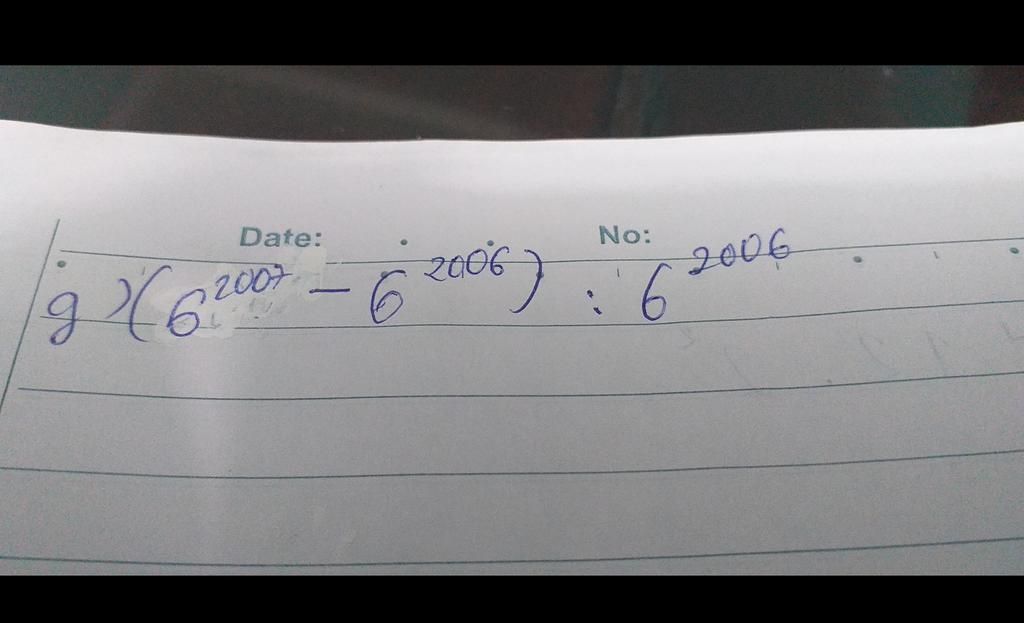 Date: No:
g) (6²⁰⁰⁷ - 6²⁰⁰⁶) : 6²⁰⁰⁶